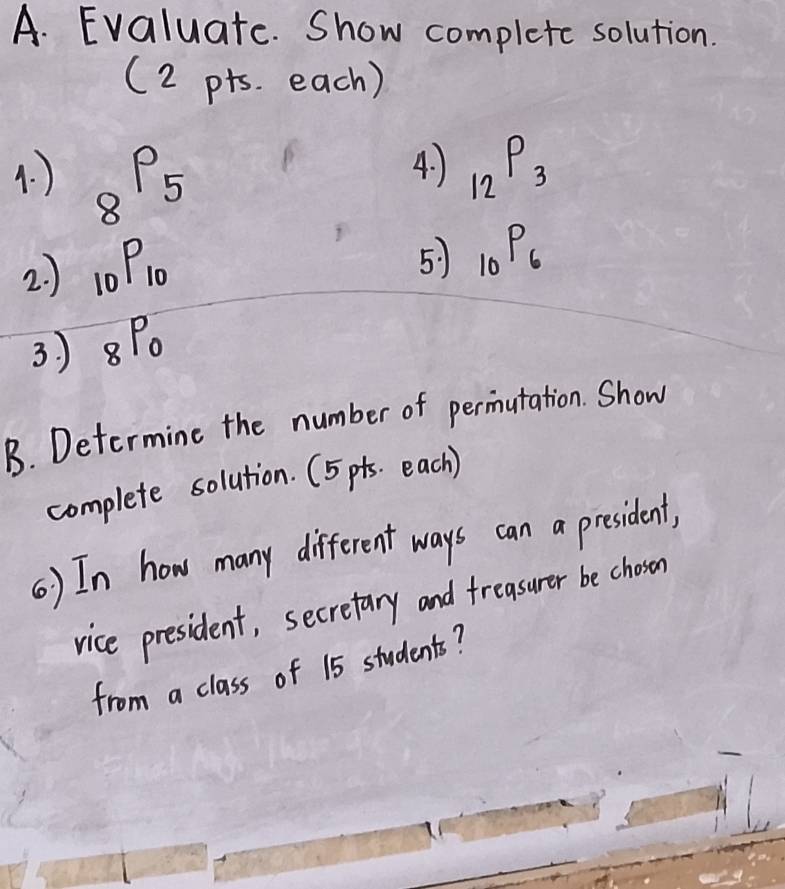 A. Evaluate. Show complete solution.
(2 pts. each)
1.) 8P5
4.) 12P3
2.) 10P10
5.) 10P6
3.) 8P0
B. Determine the number of permutation. Show
complete solution. (5 pts. each)
6.) In how many different ways can a president,
vice president, secretary and treasurer be chosen
from a class of 15 students?